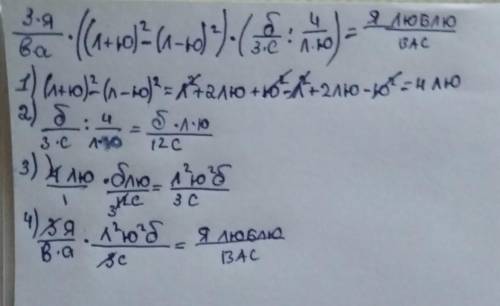 3·Я/ва · ((л+ю)²-(л-ю)²) · (б/3·с : 4/л·ю) = Я люблю/ВАС
1) (л+ю)²-(л-ю)² = л²+2лю+ю²-л²+2лю-ю² = 4лю
2) б/3·с : 4/л·ю = б·л·ю/12с
3) 4лю/1 · блю/3 12с = л²ю²б/3с
4) 3Я/в·а · л²ю²б/3с = Я люблю/ВАС